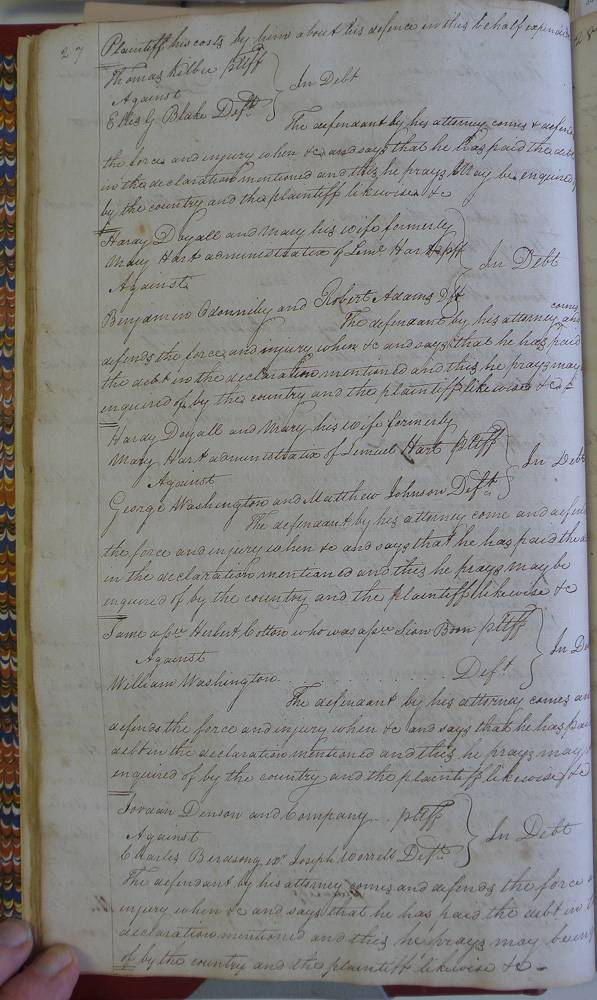 27 Plaintiff his costs by him about his defence in this behalf expended
Thomas Kilbee pltff
Against
Elles G. Blake Deft.
In Debt
The defendant by his attorney comes & defen
the force and injury when &c and says that he has paid the debt
in the declaration mentioned and this he prays May be enquired of
by the country and the plaintiff likewise &c
Hardy Doyall and Mary his wife formerly
Mary Hart administratrix of Leml Hart pff
Against
In Debt
Benjamin Odonniley and Robert Adams Dft
The defendant by his attorney comes and
defends the force and injury when &c and says that he has paid
the debt in the declaration mentioned and this he prays may
enquired of by the country and the plaintiff likewise &c
Hardy Doyall and Mary his wife formerly
Mary Hart administratrix of Lemuel Hart pltff
Against
In Debt
George Washington and Matthew Johnson Deft.
The defendant by his attorney come and defen
the force and injury when &c and says that he has paid the
in the declaration mentioned and this he prays may be
enquired of by the country and the plaintiff likewise &c
Same assee Herbert Cotton who was assee Sion Boon pltff
Against
William Washington . . . . . . . . . Deft.
In De
The defendant by his attorney comes an
defends the force and injury when &c and says that he has pai
debt in the declaration mentioned and this he prays may
enquired of by the country and the plaintiff likewise &c
Jordan Denson and Company . . pltff
Against
Charles Birdsong exr Joseph Worrell Deft.
In Debt
The defendant by his attorney comes and defends the force
injury when &c and says that he has paid the debt in
declaration mentioned and this he prays may be enq
of by the country and the plaintiff likewise &c -